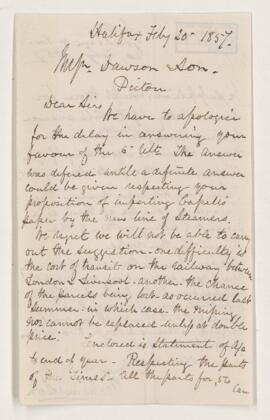 Halifax Feby 20 1857.
Messrs. Dawson & Son.
Pictou
Dear Sirs
We have to apologise
for the delay in answering your
favour of the 6 Ult. The answer
was defered untill a definite answer
could be given respecting your
proposition of importing
paper by the new line of Steamers.
We regret we will not be able to carry
out the suggestion - one difficulty is
the cost of transit on the railway between
London & Liverpool - another - the chance
of the parcels being lost - as occurred last
Summer - in which case - the missing
nos cannot be replaced unless at double
price. Enclosed is Statement of a/c
to end of year - Respecting the parts
of - all the parts for 56
can